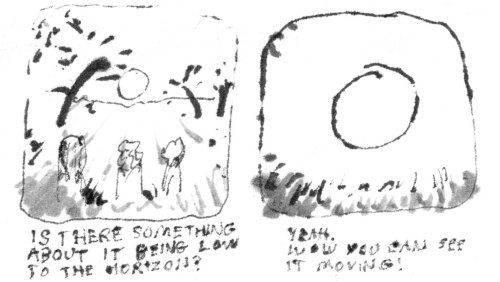 IS THERE SOMETHING
ABOUT IT BEING LOW
TO THE HORIZON?
YEAH.
WOW YOU CAN SEE
IT MOVING!